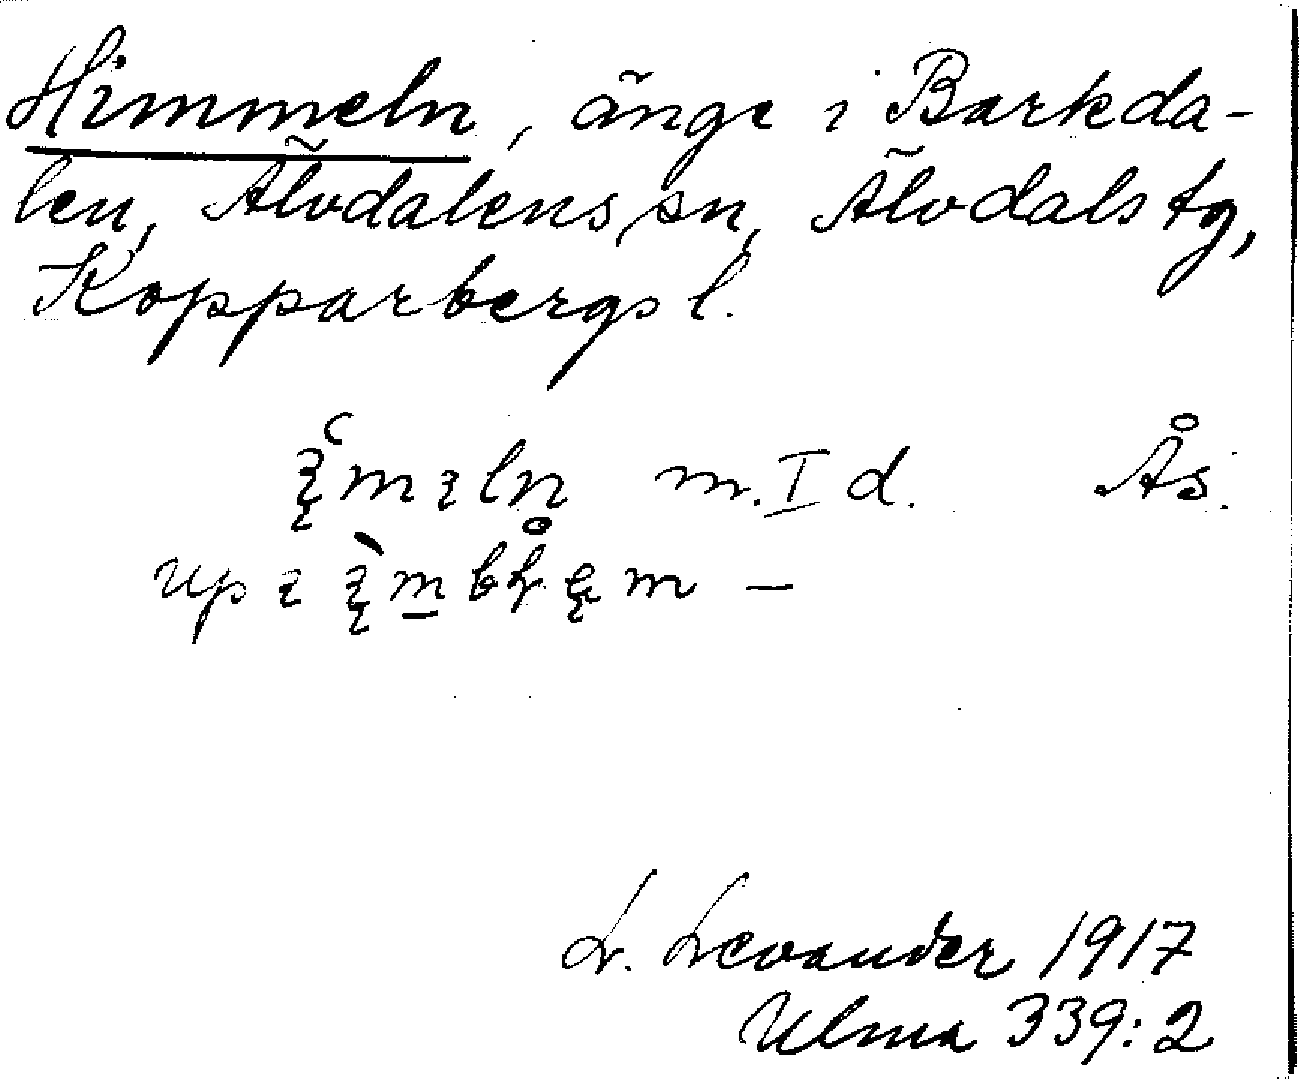 Himmeln, änge i Barkda-
len, Älvdalens sn, Älvdals tg,
Kopparbergs l.
m. I d. Ås.
up
L. Levander 1917
Ulma 339:2